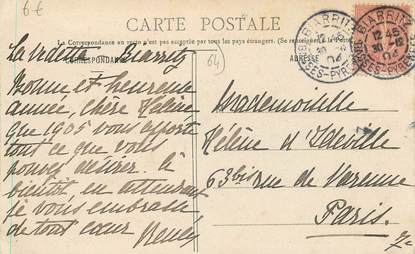 6€
CARTE POSTALE
La Correspondance au verso n'est pas acceptée par tous les pays étrangers. (Se renseigner à la Poste
CORRESPONDANCE
ADRESSE
64
BIARRITZ
12 45
30 -12
04
BSES-PYRENEES
BIARRITZ
12 45
30 -12
04
BSES-PYRENEES
La Vedette Biarritz
Bonne et heureuse
année, chère Hélène
que 1905 vous apporte
tout ce que vous
pouvez désirer. à
bientôt, en attendant
je vous embrasse
de tout cœur
Mademoiselle
Hélène d'Ideville
63 bis rue de Varenne
Paris.